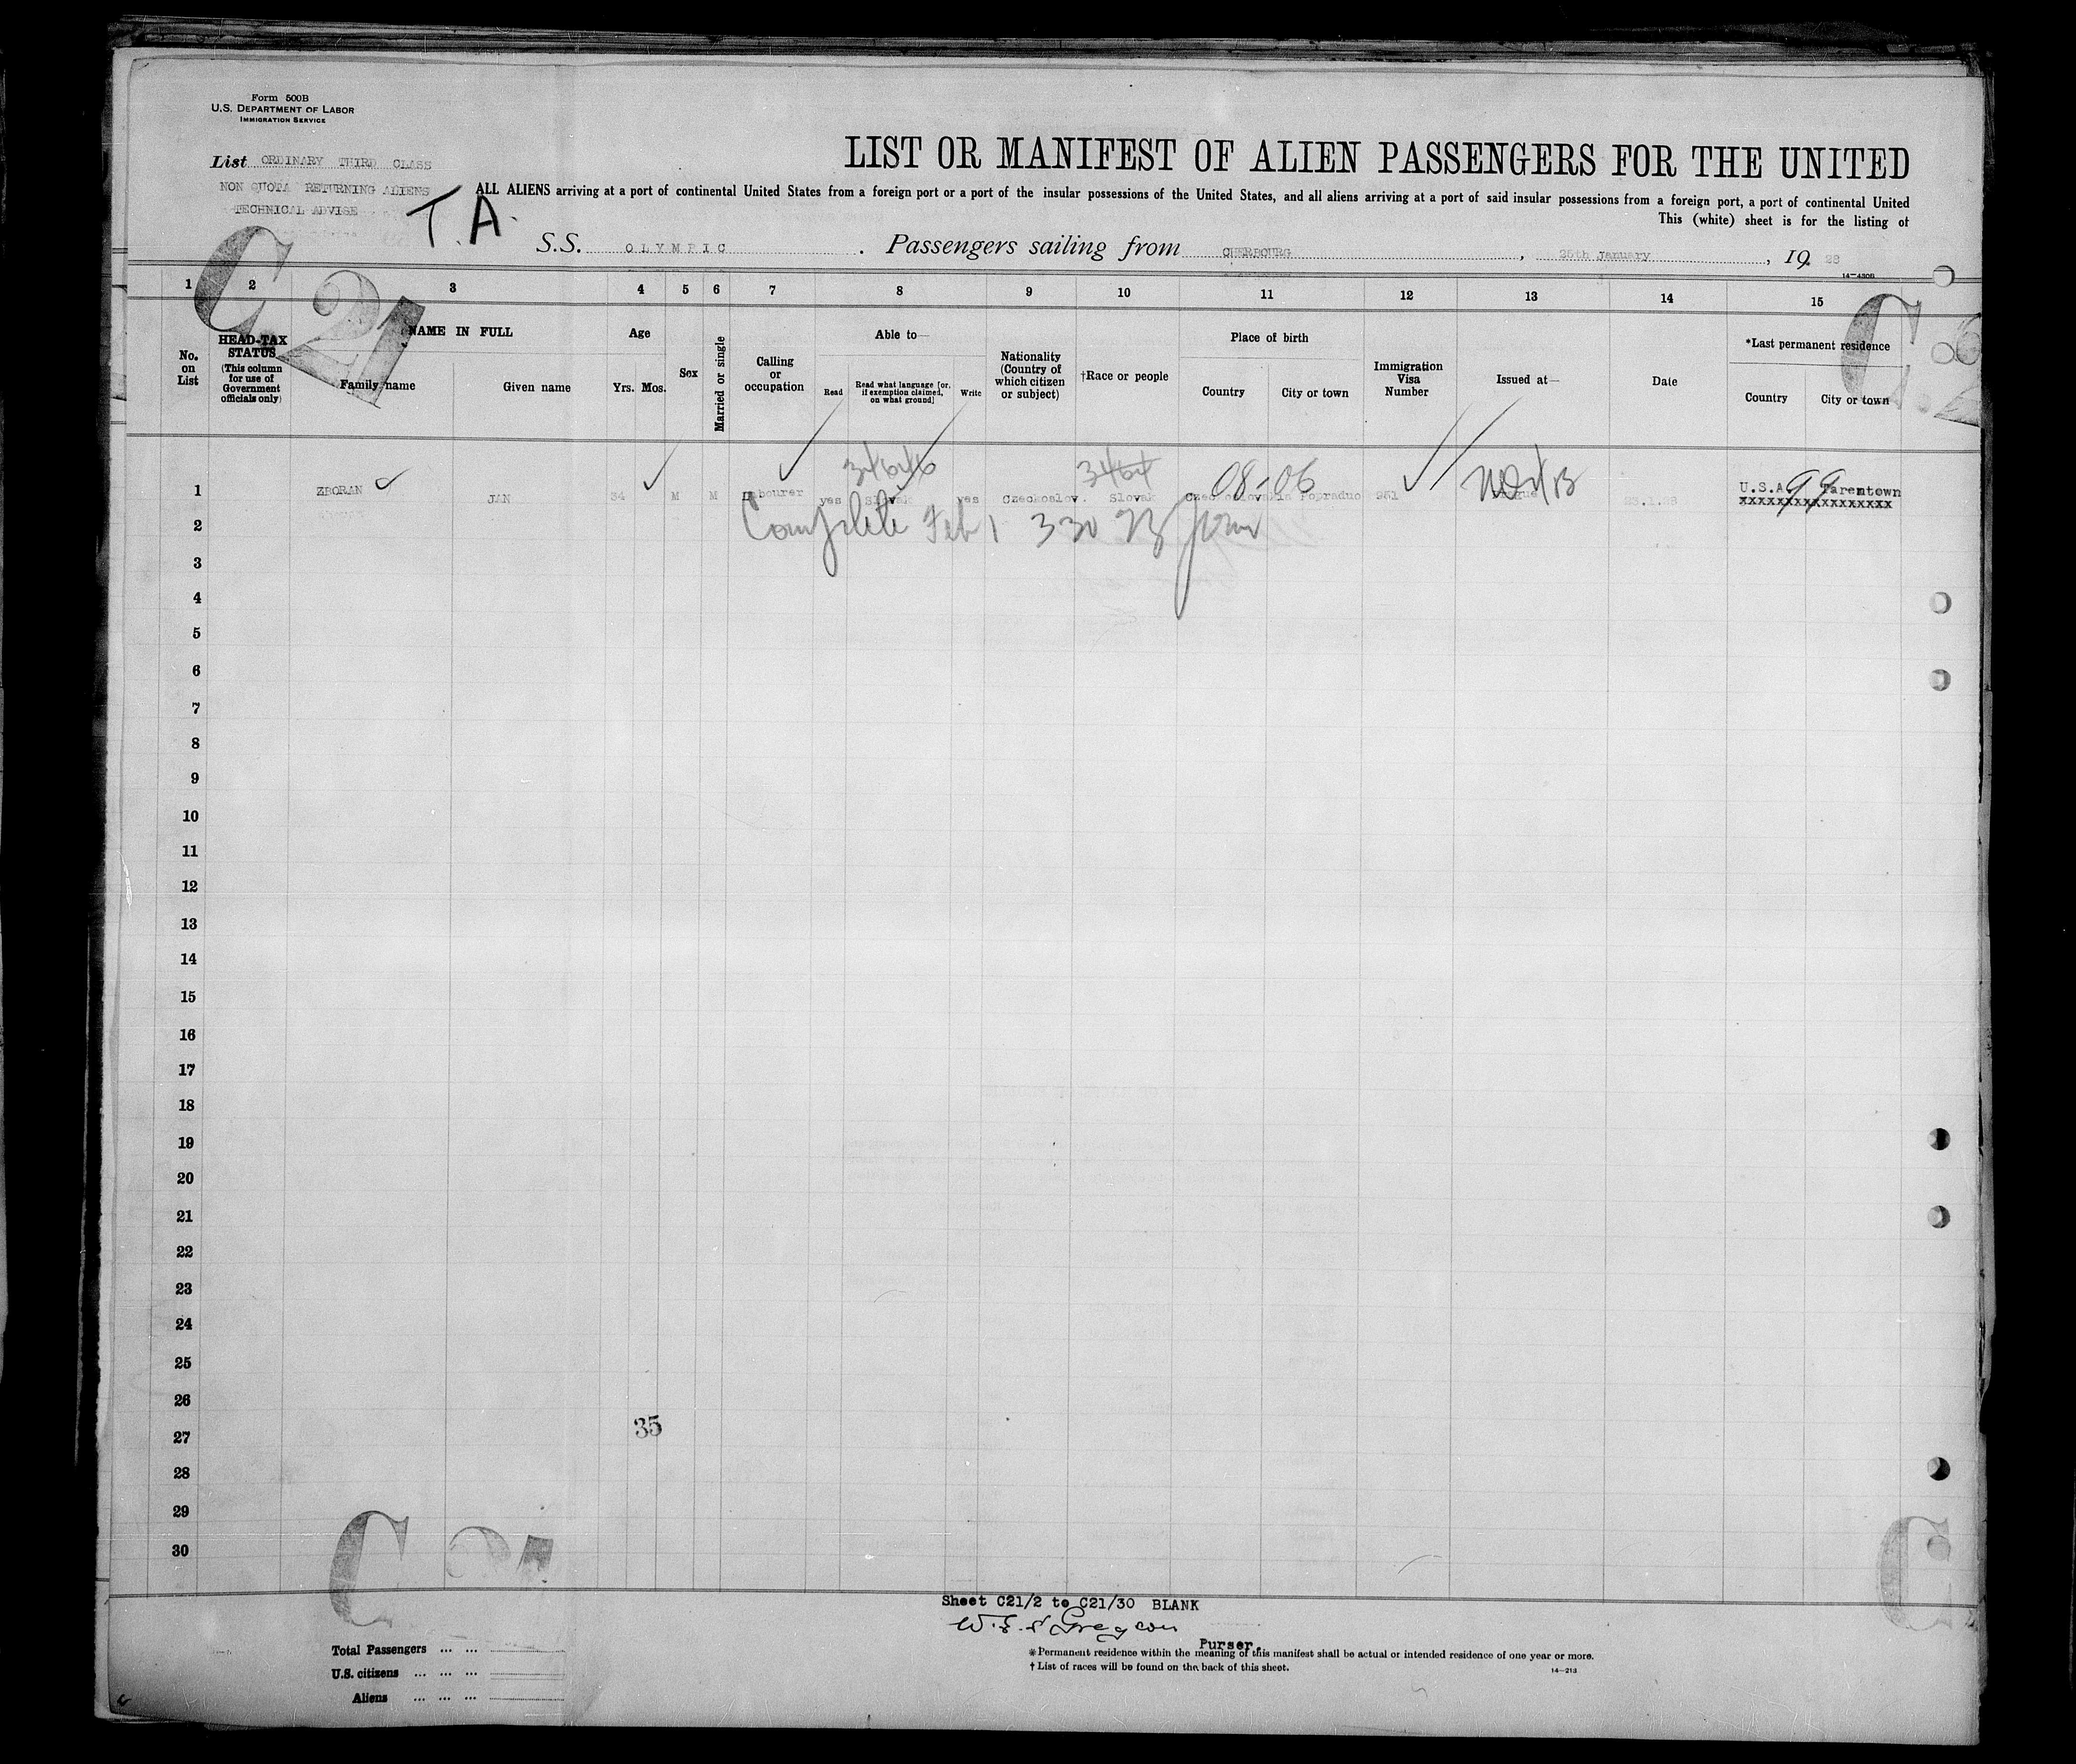 Form 500B
U.S. DEPARTMENT OF LABOR
IMMIGRATION SERVICE
List ORDINARY THIRD CLASS
NON QUOTA RETURNING ALIENS
TECHNICAL ADVISE
T.A.
LIST OR MANIFEST OF ALIEN PASSENGERS FOR THE UNITED
ALL ALIENS arriving at a port of continental United States from a foreign port or a port of the insular possessions of the United States, and all aliens arriving at a port of said insular possessions from a foreign port, a port of continental United
This (white) sheet is for the listing of
S.S. OLYMPIC. Passengers sailing from CHERBOURG, 25th January, 19 28
14-430B
C 21
1 2 3 4 5 6 7 8 9 10 11 12 13 14 15
No. on List
HEAD-TAX STATUS (This column for use of Government officials only)
NAME IN FULL
Family name Given name
Age
Yrs. Mos.
Sex
Married or single
Calling or occupation
Able to—
Read
Read what language [or, if exemption claimed, on what ground]
Write
Nationality (Country of which citizen or subject)
†Race or people
Place of birth
Country City or town
Immigration Visa Number
Issued at—
Date
*Last permanent residence
Country City or town
3464 08-06 99
1 ZBORAN JAN 34 M M Labourer yes Slovak yes Czechoslov. Slovak Czechoslovakia 951 U.S.A. Tarentown
xxxxxxxxxxxxxxxxx
Complete Feb 1 330
2
3
4
5
6
7
8
9
10
11
12
13
14
15
16
17
18
19
20
21
22
23
24
25
26
27
35
28
29
30
C
C
Sheet C21/2 to C21/30 BLANK
Purser.
Total Passengers ... ...
U.S. citizens ... ... ...
Aliens ... ... ...
*Permanent residence within the meaning of this manifest shall be actual or intended residence of one year or more.
†List of races will be found on the back of this sheet.
14-213